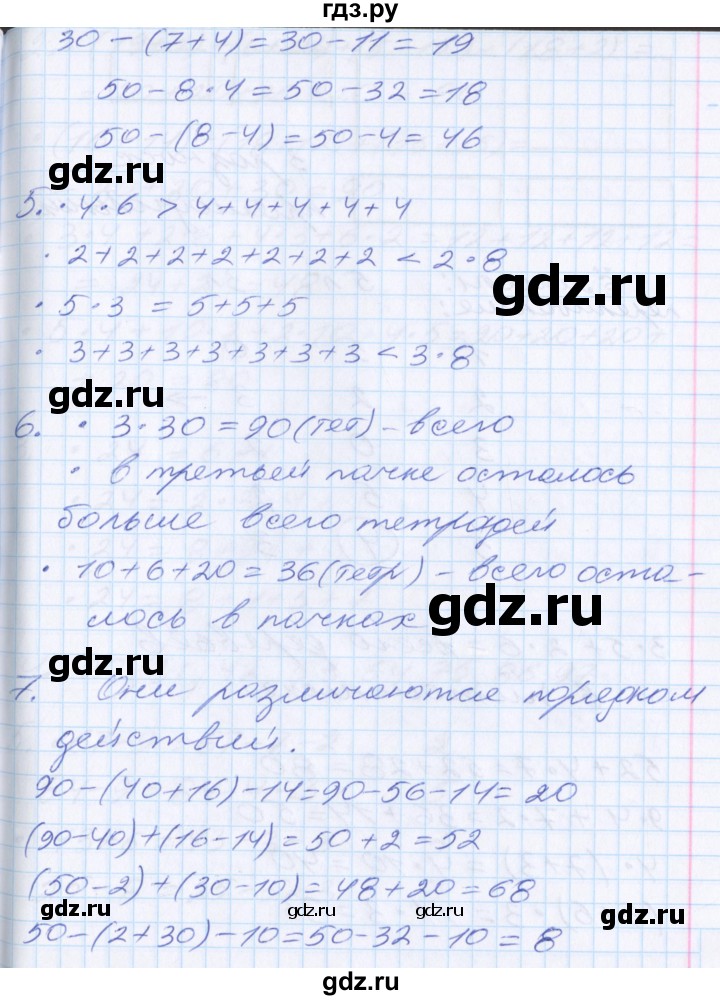 гдз.ру
30-(7+4)=30-11=19
50-8·4=50-32=18
50-(8-4)=50-4=46
gdz.ru
5. ·4·6 > 4+4+4+4+4
·2+2+2+2+2+2+2 < 2·8
gdz.ru
·5·3 = 5+5+5
·3+3+3+3+3+3+3 < 3·8
gdz.ru
6. ·3·30=90(тет)-всего
·в третьей пачке осталось
больше всего тетрадей
·10+6+20=36(тетр)-всего оста-
gdz.ru
лось в пачках
gdz.ru
7. Они различаются порядком
действий.
90-(40+16)-14=90-56-14=20
(90-40)+(16-14)=50+2=52
(50-2)+(30-10)=48+20=68
gdz.ru gdz.ru gdz.ru gdz.ru
50-(2+30)-10=50-32-10=8
gdz.ru